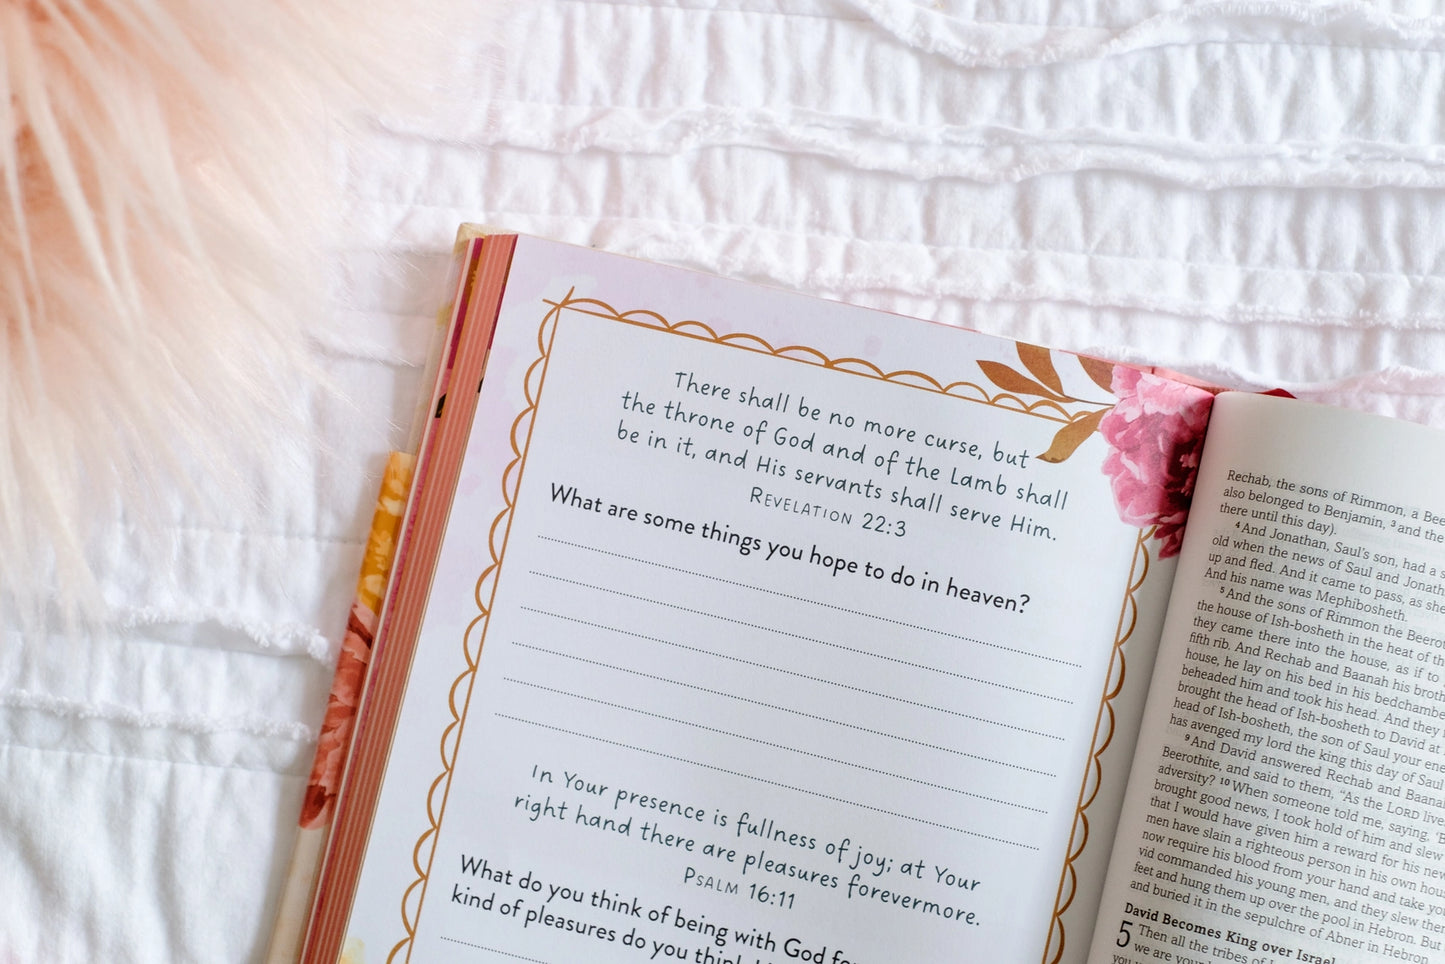 There shall be no more curse, but
the throne of God and of the Lamb shall
be in it, and His servants shall serve Him.
REVELATION 22:3
What are some things you hope to do in heaven?
In Your presence is fullness of joy; at Your
right hand there are pleasures forevermore.
PSALM 16:11
What do you think of being with God
kind of pleasures do you think
Rechab, the sons of Rimmon, a
also belonged to Benjamin, ³and the
there until this day).
⁴And Jonathan, Saul's son, had a
old when the news of Saul and
up and fled. And it came to pass, as she
And his name was Mephibosheth.
⁵And the sons of Rimmon the
the house of Ish-bosheth in the heat of
they came there into the house, as if to
fifth rib. And Rechab and Baanah his
house, he lay on his bed in his
beheaded him and took his head. And they
brought the head of Ish-bosheth to David at
head of Ish-bosheth, the son of Saul your
has avenged my lord the king this day of Saul
⁹And David answered Rechab and
Beerothite, and said to them, "As the LORD
adversity? ¹⁰When someone told me, saying,
brought good news, I took hold of him and slew
that I would have given him a reward for his
men have slain a righteous person in his own
now require his blood from your hand and take
vid commanded his young men, and they slew
feet and hung them up over the pool in Hebron. But
and buried it in the sepulchre of Abner in Hebron
David Becomes King over Israel
5 Then all the tribes of
we are your